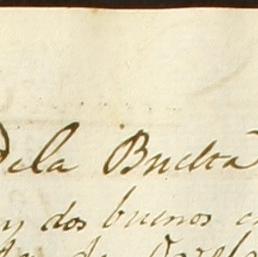 Dela Buelta
y dos buenos
da de